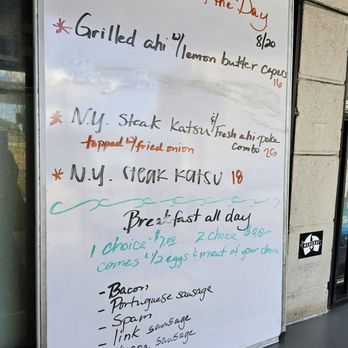 of the Day
8/20
* Grilled ahi w/ lemon butter capers
16
* N.Y. Steak Katsu & Fresh ahi poke
topped w/ fried onion combo 25
* N.Y. Steak Katsu 18
Breakfast all day
1 choice $7.00 2 choice
comes w/ 2 eggs & meat of your choice
- Bacon
- Portuguese sausage
- Spam
- link sausage
sausage